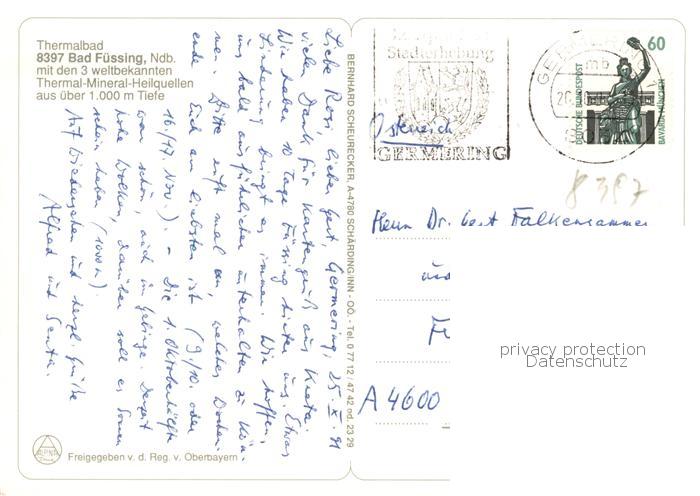 Thermalbad
8397 Bad Füssing, Ndb.
mit den 3 weltbekannten
Thermal-Mineral-Heilquellen
aus über 1.000 m Tiefe
Germering, 25. X. 91
Liebe Rosi, lieber Gert,
vielen Dank für Kartengruß aus Kreta.
Wir haben 10 Tage Füssing hinter uns. Etwas
Linderung bringt es immer. Wir hoffen,
uns bald ausführlicher unterhalten zu kön-
nen. Bitte ruft mal an, welches Wochen-
ende Euch am liebsten ist (9./10. oder
16./17. Nov.). – Die 1. Oktoberhälfte
war schön, auch im Gebirge. Derzeit
hohe Wolken, darüber soll es Sonnen
schein haben (1000 m).
Auf Wiedersehen und herzl. Grüße
Alfred und Senta.
Freigegeben v. d. Reg. v. Oberbayern
BERNHARD SCHEURECKER, A-4780 SCHÄRDING/INN - OÖ. - Tel. 0 77 12 / 47 42 od. 23 29
Stadterhebung
GERMERING
mb
20
60
DEUTSCHE BUNDESPOST
BAVARIA MÜNCHEN
Österreich
8397
Herrn Dr. Gert Falkensammer
und
A 4600
privacy protection
Datenschutz